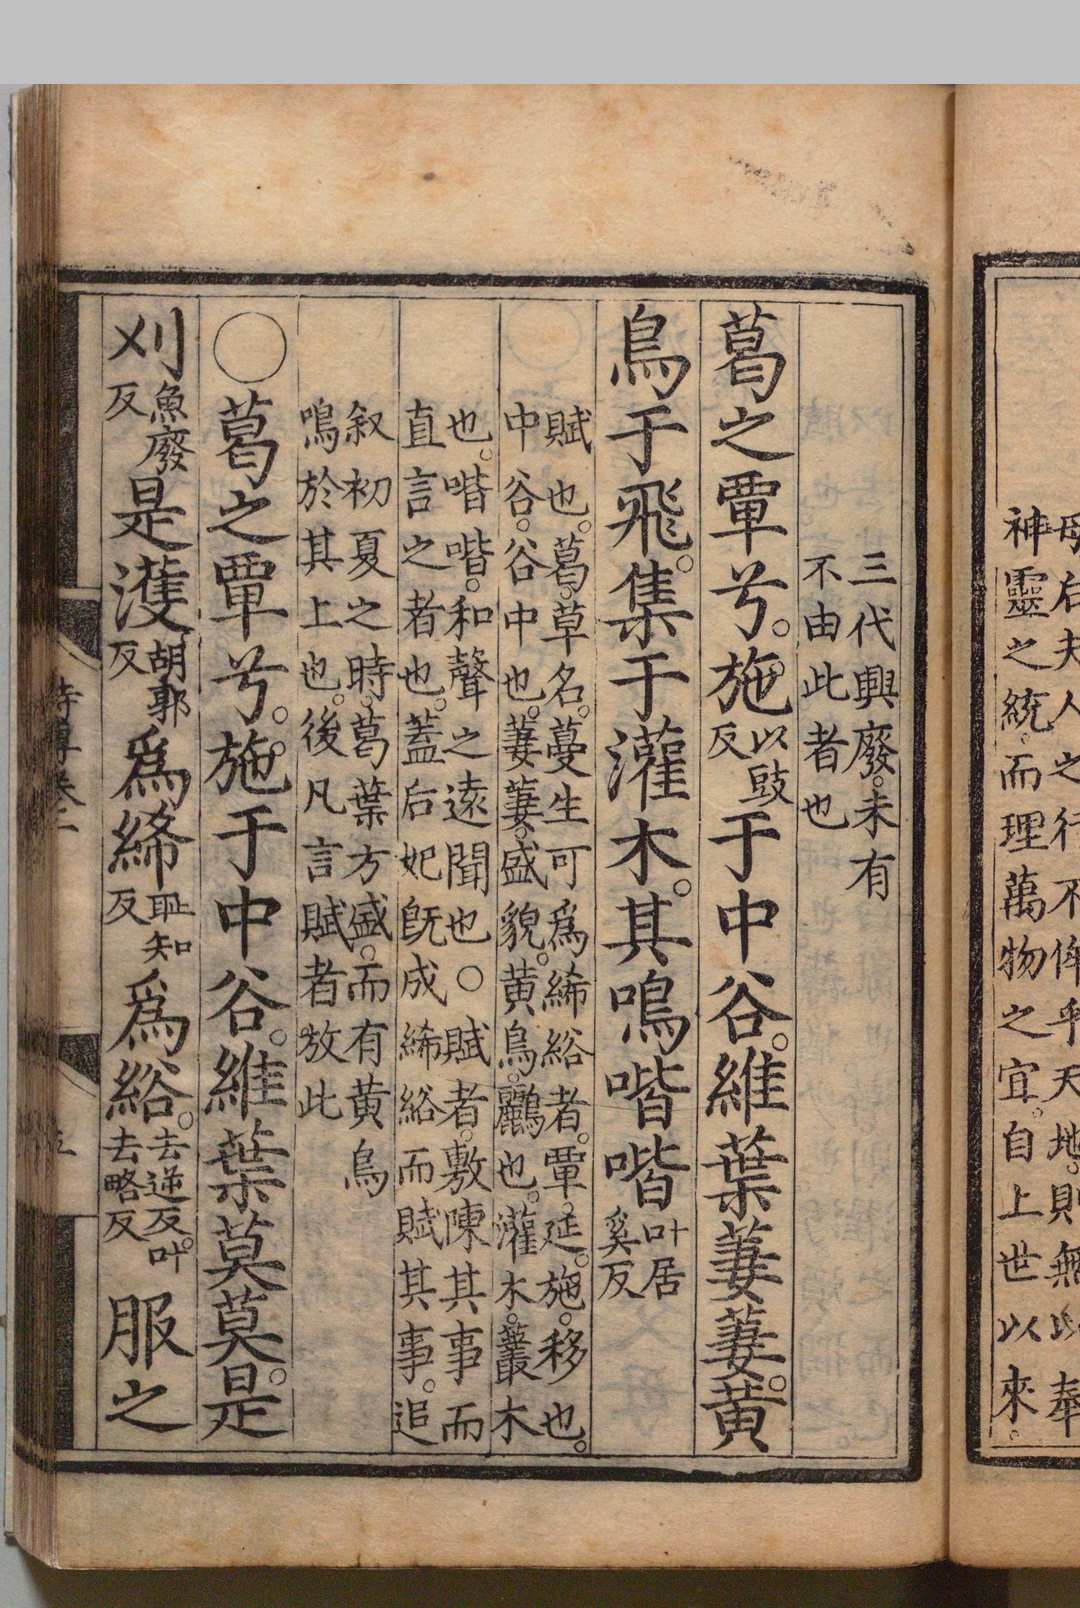 母后夫人之行不侔乎天地。則無以奉
神靈之統。而理萬物之宜。自上世以來。
三代興廢。未有
不由此者也
葛之覃兮。施以豉反于中谷。維葉萋萋。黃
鳥于飛。集于灌木。其鳴喈喈叶居奚反
賦也。葛。草名。蔓生可為絺綌者。覃。延。施。移也。
中谷。谷中也。萋萋。盛貌。黃鳥。鸝也。灌木。叢木
也。喈喈。和聲之遠聞也○賦者。敷陳其事而
直言之者也。蓋后妃旣成絺綌而賦其事。追
叙初夏之時。葛葉方盛。而有黃鳥
鳴於其上也。後凡言賦者放此
○葛之覃兮。施于中谷。維葉莫莫。是
刈魚廢反是濩胡郭反為絺恥知反為綌。去逆反。叶去略反服之
詩傳卷一
五